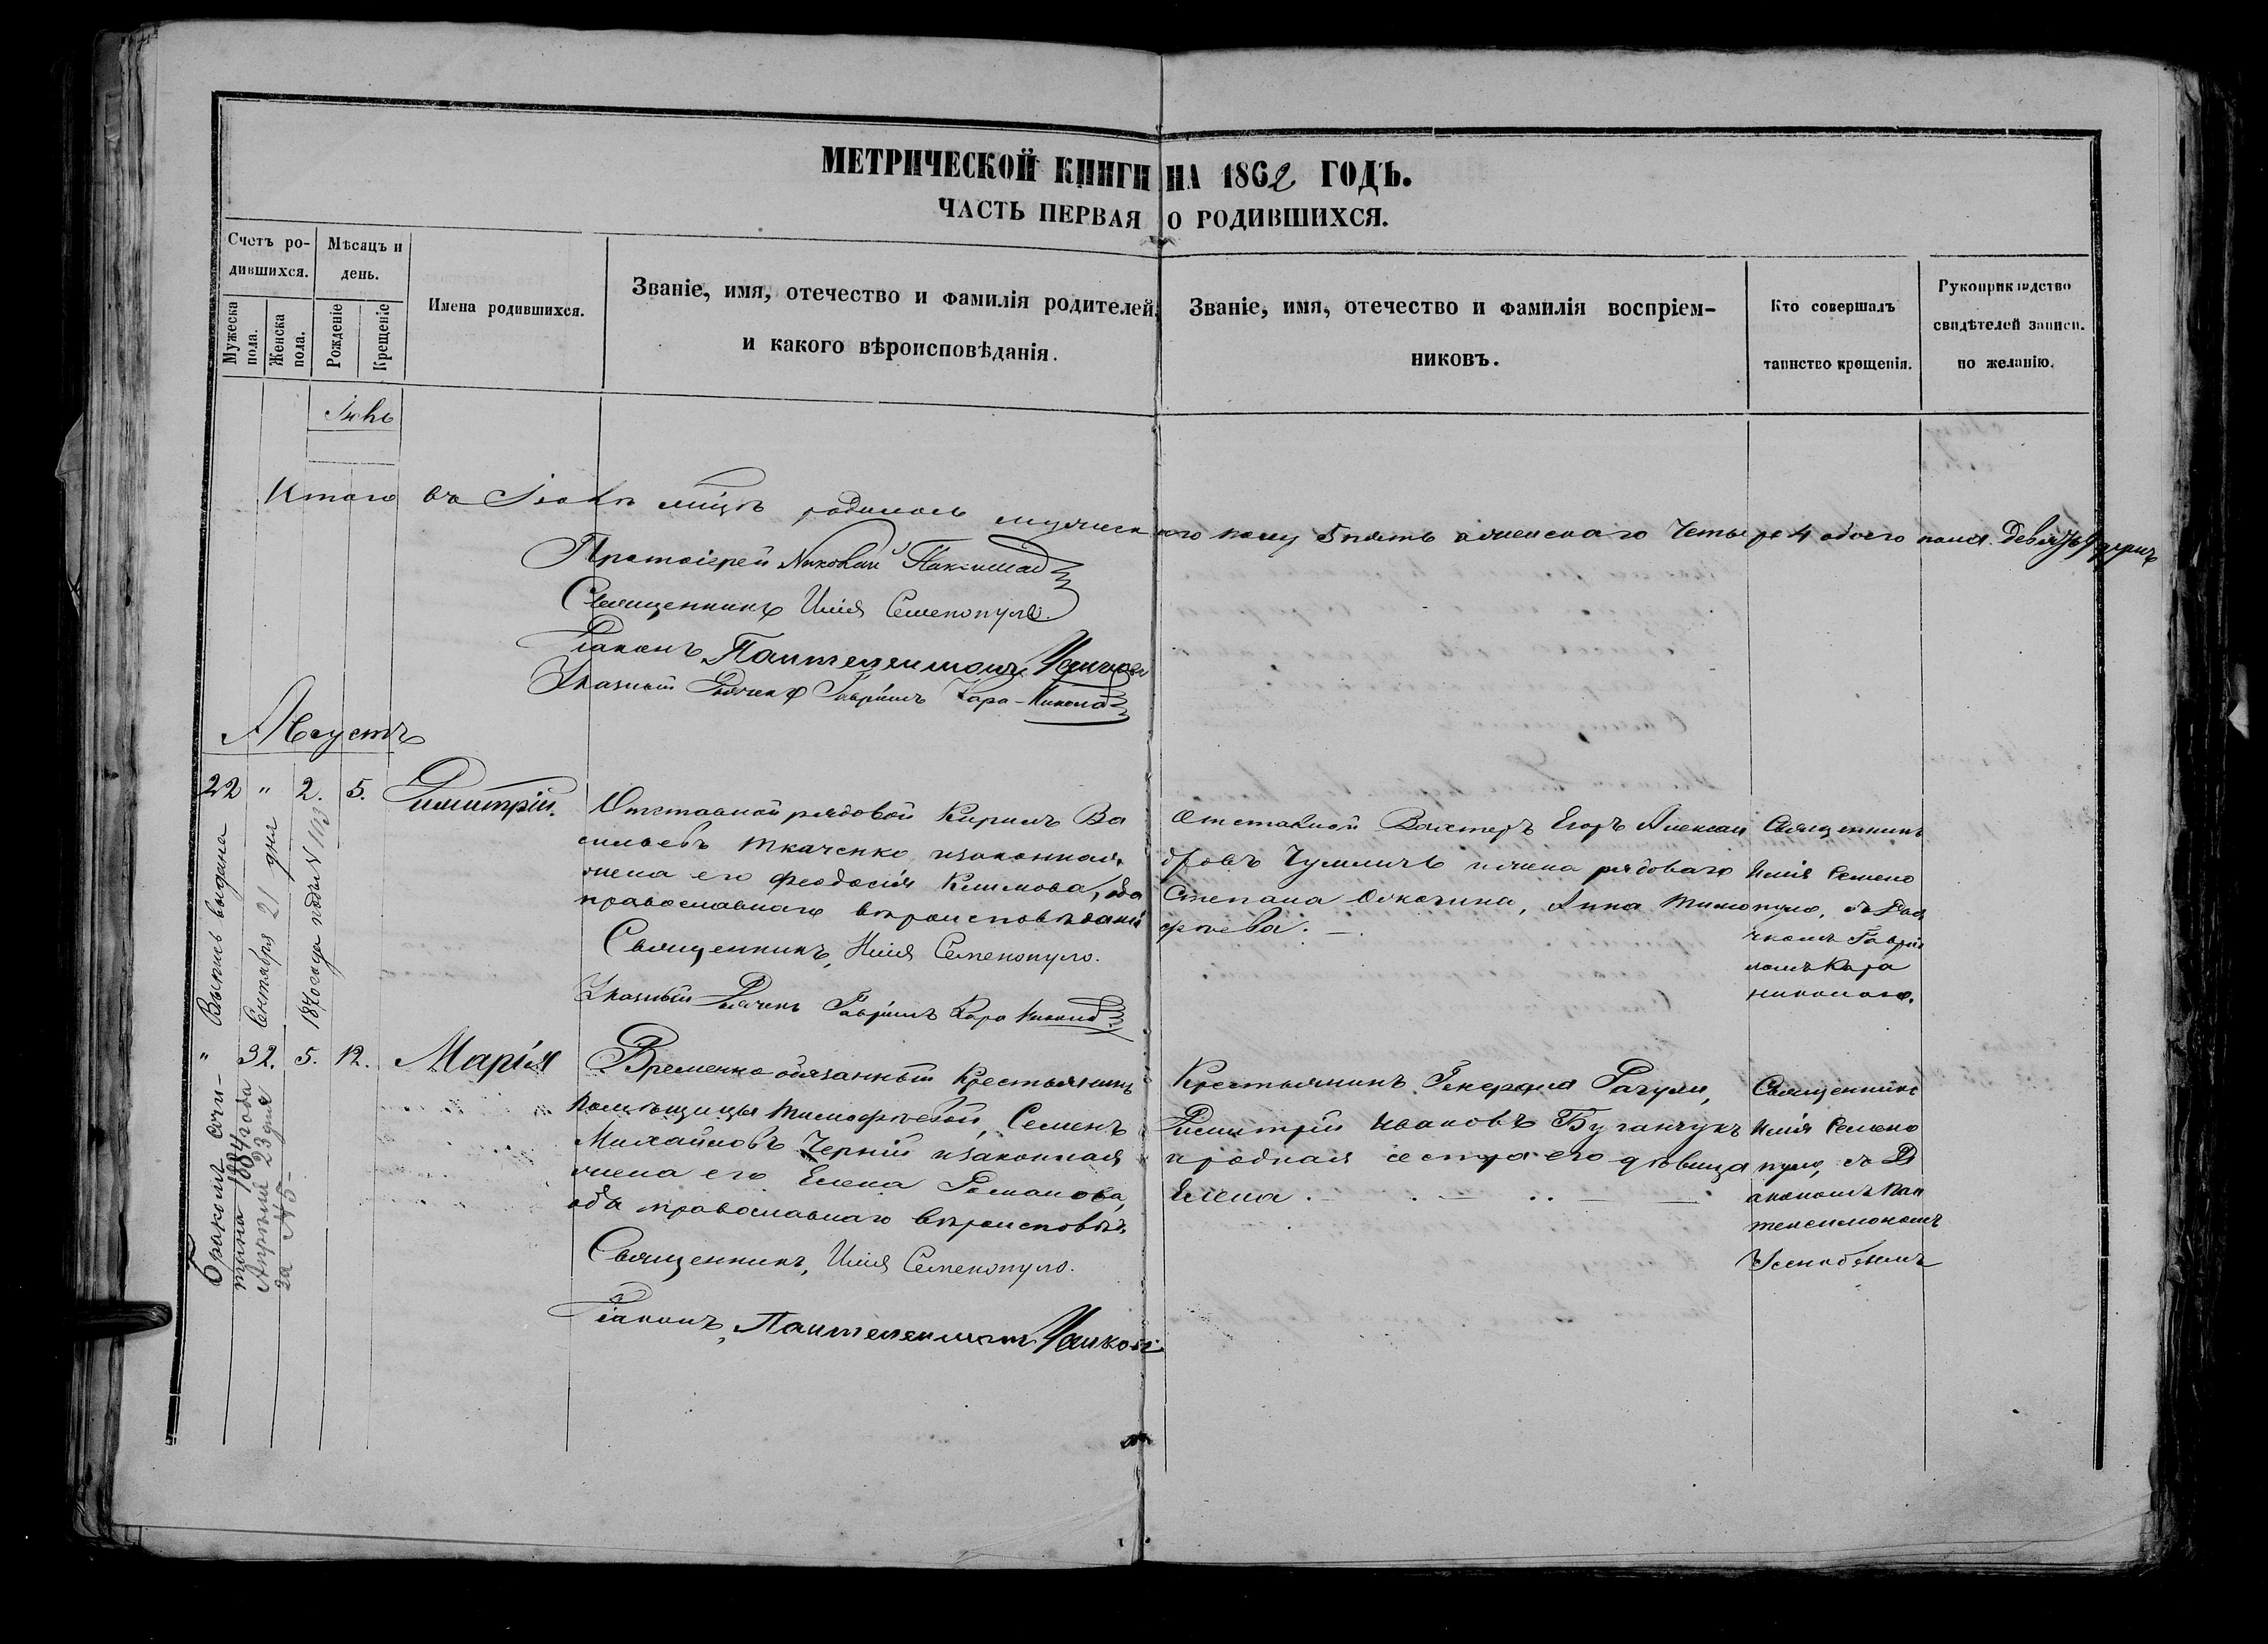 МЕТРИЧЕСКОЙ КНИГИ НА 1862 ГОДЪ.
ЧАСТЬ ПЕРВАЯ О РОДИВШИХСЯ.
Счетъ ро-
дившихся.
Мужеска пола.
Женска пола.
Мѣсяцъ и
день.
Рожденіе
Крещеніе
Имена родившихся.
Званіе, имя, отечество и фамилія родителей,
и какого вѣроисповѣданія.
Званіе, имя, отечество и фамилія воспріем-
никовъ.
Кто совершалъ
таинство крещенія.
Рукоприкладство
свидѣтелей записи.
по желанію.
Итого въ родилось мужескаго полу 5 пять и женскаго четыре 4 обоего пола девять 9
Протоіерей Николай
Священникъ Илія Семенопуло.
Діаконъ Пантелеимонъ
Указный Дьячекъ Гавріилъ Кара-Никола
Августъ
22 " 2. 5. Димитрій.
Отставной рядовой Кирилъ Ва
сильевъ Ткаченко и законная
жена его Феодосія Климова, оба
православнаго вѣроисповѣданія
Священникъ, Илія Семенопуло.
Указный Дьячекъ Гавріилъ Кара Никола
Отставной Вахтеръ Егоръ Александ
ровъ и жена рядоваго
Степана Анна Тимо
фѣева. —
Священникъ
Илія Семено
пуло, съ Дья
чкомъ Гаврі
ломъ Кара
николою.
Выпись выдана
Сентября 21 дня
1870 года подъ N 103
" 32. 5. 12. Марія
Временно обязанный Крестьянинъ
Помѣщицы Тимофѣевой, Семенъ
Михайловъ Черній и законная
жена его Елена Романова,
оба православнаго вѣроисповѣд.
Священникъ, Илія Семенопуло.
Діаконъ, Пантелеимонъ
Крестьянинъ Генерала
Димитрій Ивановъ
и родная сестра его дѣвица
Елена. —
Священникъ
Илія Семено
пуло, съ Ді
акономъ Пан
телеимономъ
Бракомъ сочи-
тана 1884 года
23 дня
за N 5